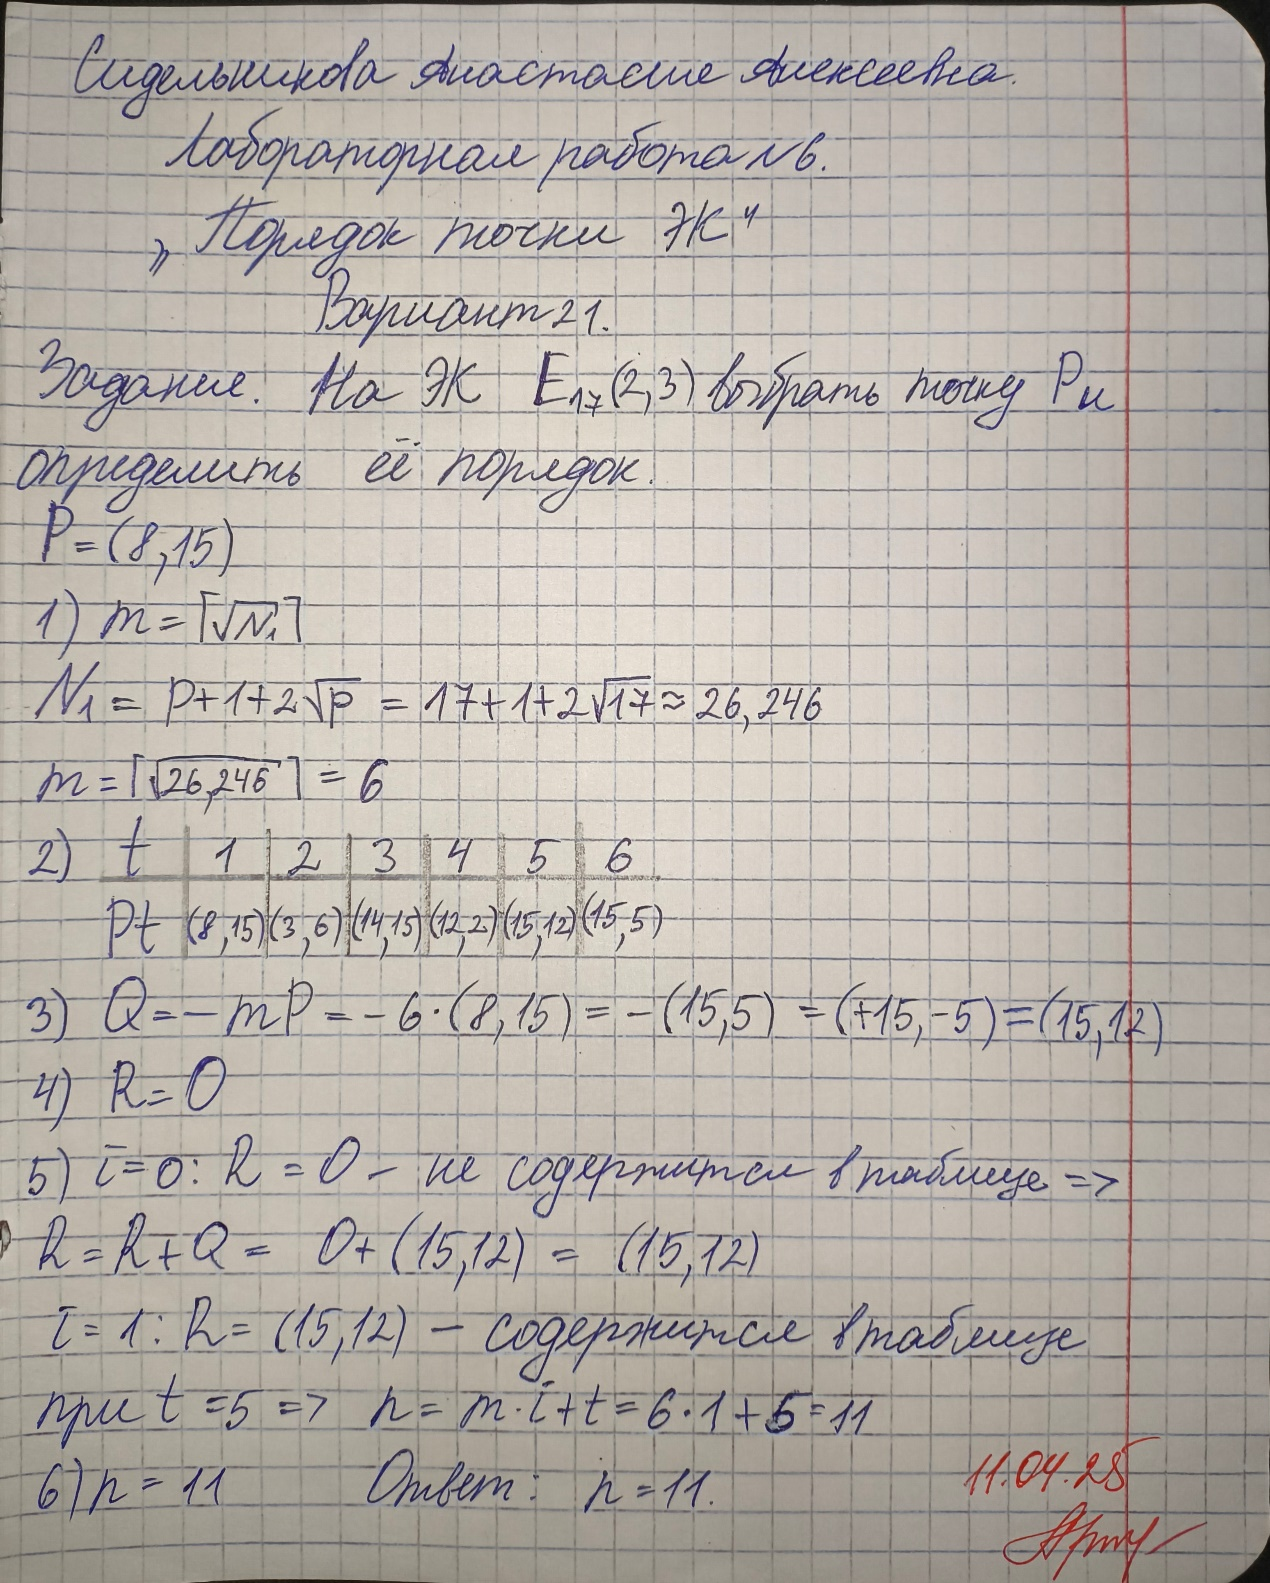 Сидельникова Анастасия Алексеевна.
Лабораторная работа №6.
„Порядок точки ЭК"
Вариант 21.
Задание. На ЭК E₁₇(2,3) выбрать точку P и
определить её порядок.
P=(8,15)
1) m=⌈√N₁⌉
N₁ = p+1+2√p = 17+1+2√17 ≈ 26,246
m=⌈√26,246⌉ = 6
2) t | 1 | 2 | 3 | 4 | 5 | 6
Pt | (8,15) | (3,6) | (14,15) | (12,2) | (15,12) | (15,5)
3) Q=-mP = -6·(8,15) = -(15,5) =(+15,-5)=(15,12)
4) R=O
5) i=0: R=O - не содержится в таблице =>
R=R+Q = O+(15,12) = (15,12)
i=1: R=(15,12) – содержится в таблице
при t=5 => n= m·i+t=6·1+5=11
6) n=11 Ответ: n=11.
11.04.25